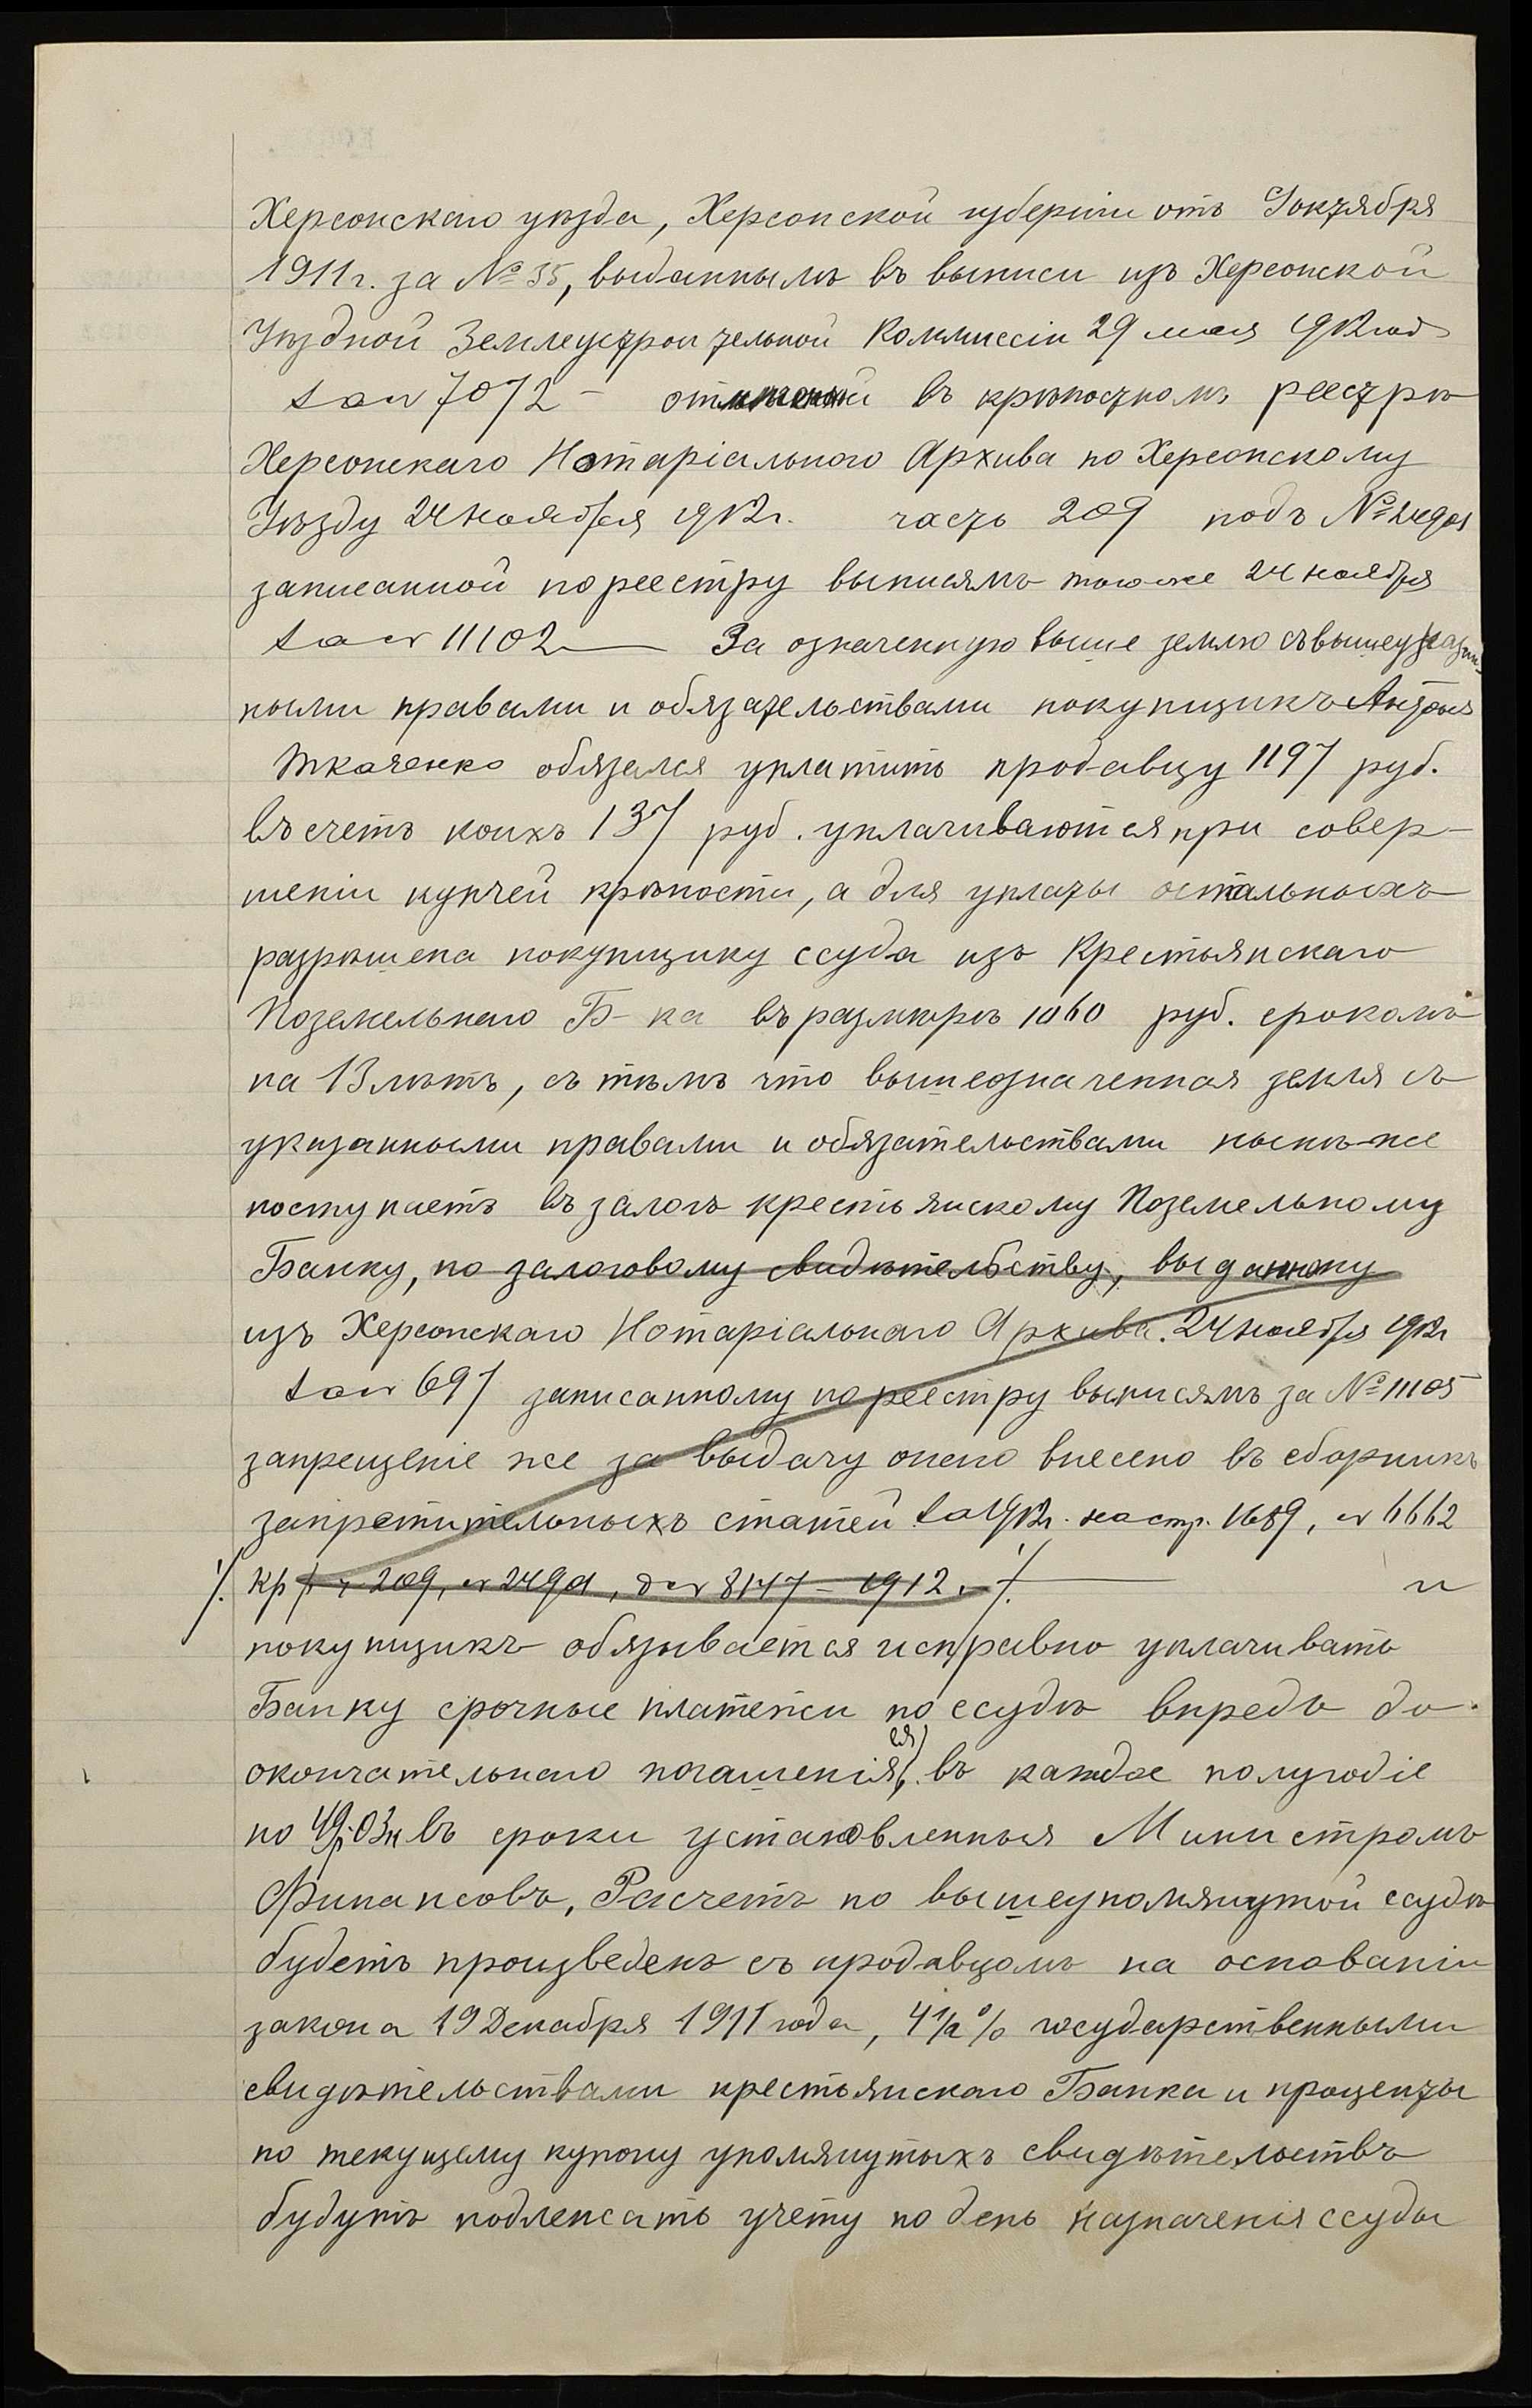 Херсонскаго уѣзда, Херсонской губерніи отъ 9 октября
1911 г. за № 35, выданнымъ въ выписи изъ Херсонской
Уѣздной Землеустроительной Коммиссіи 29 мая 1912 год
за № 7072 – отмѣченной въ крѣпостномъ реестрѣ
Херсонскаго Нотаріальнаго Архива по Херсонскому
Уѣзду 24 ноября 1912 г. часть 209 подъ № 2490
записанной по реестру выписямъ того же 24 ноября
за № 11102 — За означенную выше землю съ вышеуказан-
ными правами и обязательствами покупщикъ
Ткаченко обязался уплатить продавцу 1197 руб.
въ счетъ коихъ 137 руб. уплачиваются при совер-
шеніи купчей крѣпости, а для уплаты остальныхъ
разрѣшена покупщику ссуда изъ Крестьянскаго
Поземельнаго Б-ка въ размѣрѣ 1060 руб. срокомъ
на 13 лѣтъ, съ тѣмъ что вышеозначенная земля съ
указанными правами и обязательствами нынѣ-же
поступаетъ въ залогъ крестьянскому Поземельному
Банку, по залоговому свидѣтельству, выданному
изъ Херсонскаго Нотаріальнаго Архива. 24 ноября 1912 г
за № 697 записанному по реестру выписямъ за № 11105
запрещеніе же за выдачу онаго внесено въ сборникъ
запретительныхъ статей за 1912 г. на стр. 1689, № 6662
кр р ч 209, № 2490, д № 8147 – 1912 г. ./. — и
покупщикъ обязывается исправно уплачивать
Банку срочные платежи по ссудѣ впредь до
окончательнаго погашенія ея, въ каждое полугодіе
по 49 р. 03 к въ сроки установленныя Министромъ
Финансовъ, Расчетъ по вышеупомянутой ссудѣ
будетъ произведенъ съ продавцомъ на основаніи
закона 19 Декабря 1911 года, 4 1/2 % государственными
свидѣтельствами крестьянскаго Банка и проценты
по текущему купону упомянутыхъ свидѣтельствъ
будутъ подлежать учету по день назначенія ссуды